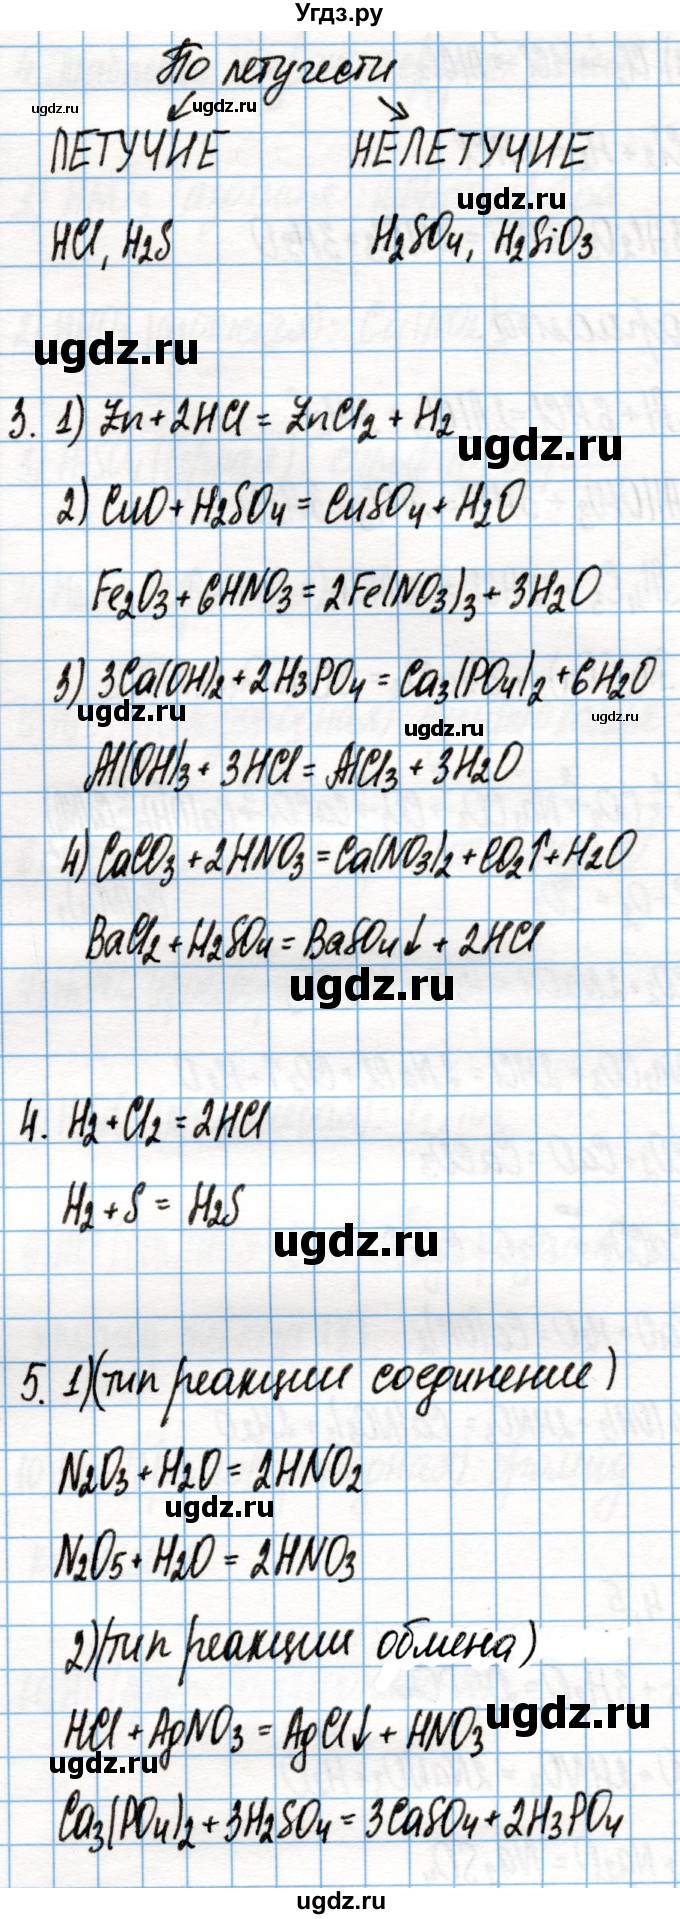 Угдз.ру
По летучести
ugdz.ru
ugdz.ru
ЛЕТУЧИЕ НЕЛЕТУЧИЕ
ugdz.ru
HCl, H2S H2SO4, H2SiO3
ugdz.ru
3. 1) Zn + 2HCl = ZnCl2 + H2
ugdz.ru
2) CuO + H2SO4 = CuSO4 + H2O
Fe2O3 + 6HNO3 = 2Fe(NO3)3 + 3H2O
3) 3Ca(OH)2 + 2H3PO4 = Ca3(PO4)2 + 6H2O
ugdz.ru
ugdz.ru
ugdz.ru
Al(OH)3 + 3HCl = AlCl3 + 3H2O
4) CaCO3 + 2HNO3 = Ca(NO3)2 + CO2↑ + H2O
BaCl2 + H2SO4 = BaSO4↓ + 2HCl
ugdz.ru
4. H2 + Cl2 = 2HCl
H2 + S = H2S
ugdz.ru
5. 1) (тип реакции соединение)
N2O3 + H2O = 2HNO2
ugdz.ru
N2O5 + H2O = 2HNO3
2) (тип реакции обмена)
ugdz.ru
HCl + AgNO3 = AgCl↓ + HNO3
ugdz.ru
Ca3(PO4)2 + 3H2SO4 = 3CaSO4 + 2H3PO4
ugdz.ru